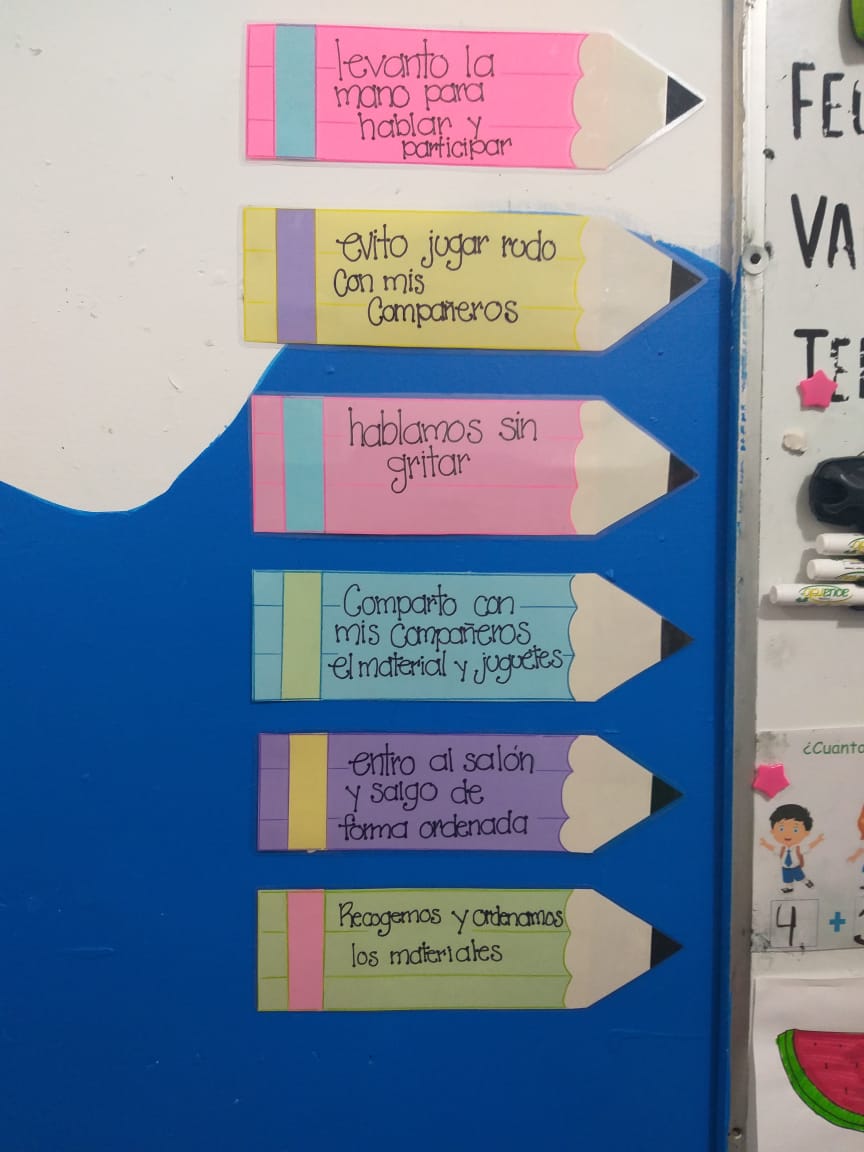 levanto la
mano para
hablar y
participar
evito jugar rudo
con mis
compañeros
hablamos sin
gritar
Comparto con
mis compañeros
el material y juguetes
entro al salón
y salgo de
forma ordenada
Recogemos y ordenamos
los materiales
VA
4 +